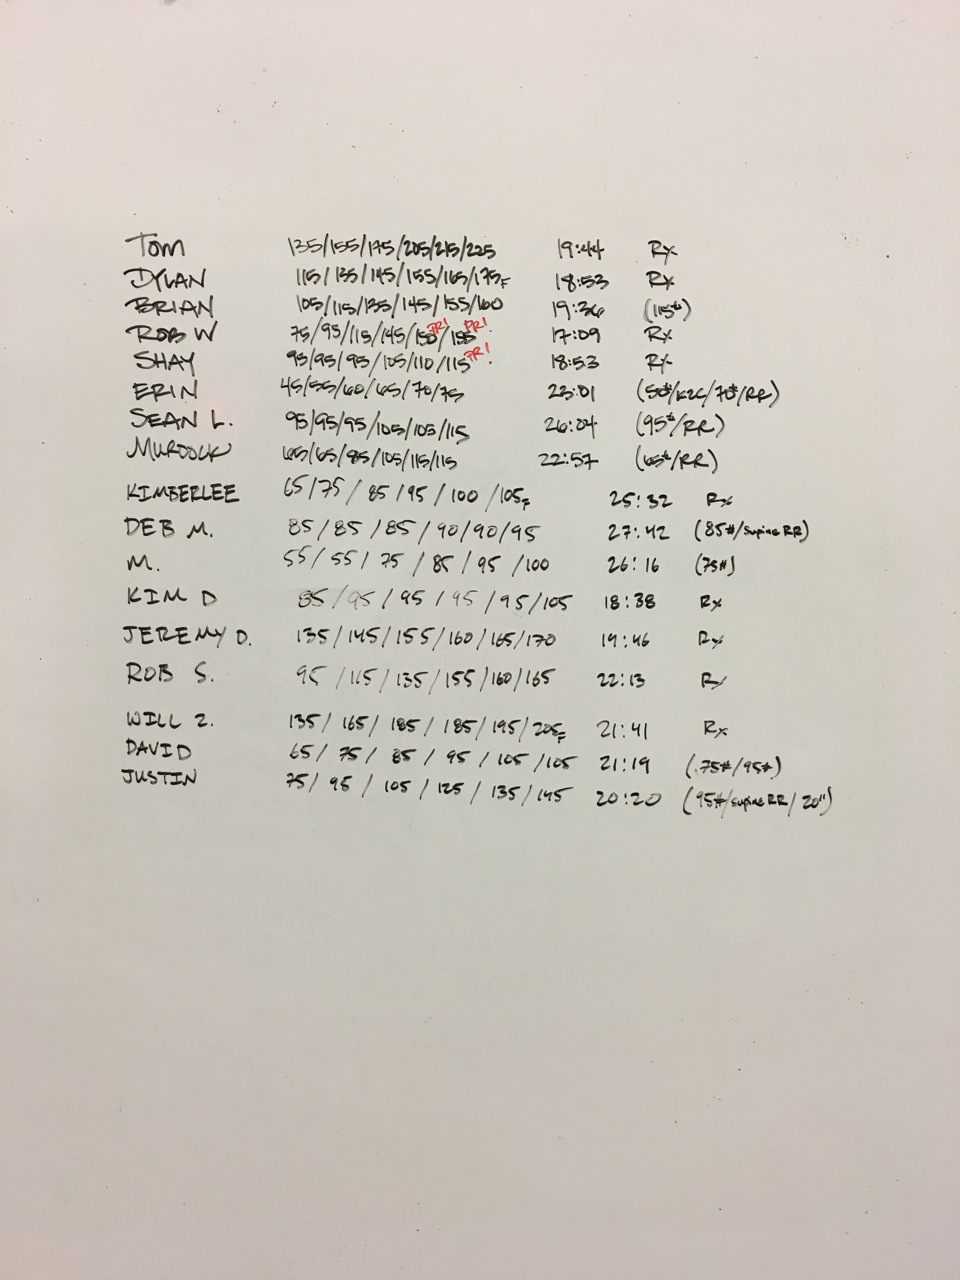 Tom 135/155/175/205/215/225 19:44 Rx
DYLAN 115/135/145/155/165/175F 18:53 Rx
BRIAN 105/115/135/145/155/160 19:36 (115#)
ROB W 75/95/115/145/150 PR!/155 PR! 17:09 Rx
SHAY 95/95/95/105/110/115 PR! 18:53 Rx
ERIN 45/55/60/65/70/75 23:01 (50#/K2C/70#/RR)
SEAN L. 95/95/95/105/105/115 26:04 (95#/RR)
MURDOCK 65/65/85/105/115/115 22:57 (65#/RR)
KIMBERLEE 65/75/85/95/100/105F 25:32 Rx
DEB M. 85/85/85/90/90/95 27:42 (85#/Supine RR)
M. 55/55/75/85/95/100 26:16 (75#)
KIM D 85/95/95/95/95/105 18:38 Rx
JEREMY D. 135/145/155/160/165/170 19:46 Rx
ROB S. 95/115/135/155/160/165 22:13 Rx
WILL Z. 135/165/185/185/195/205F 21:41 Rx
DAVID 65/75/85/95/105/105 21:19 (.75#/95#)
JUSTIN 75/95/105/125/135/145 20:20 (95#/supine RR/20")